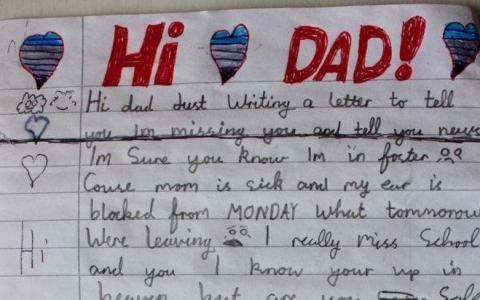 Hi DAD!
Hi dad Just Writing a letter to tell
you Im missing you and tell you news
Im Sure you Know Im in foster
Couse mom is sick and my ear is
blocked from MONDAY What tommorow
Were leaving I really miss School
and you I Know your up in
heaven but are you
Hi